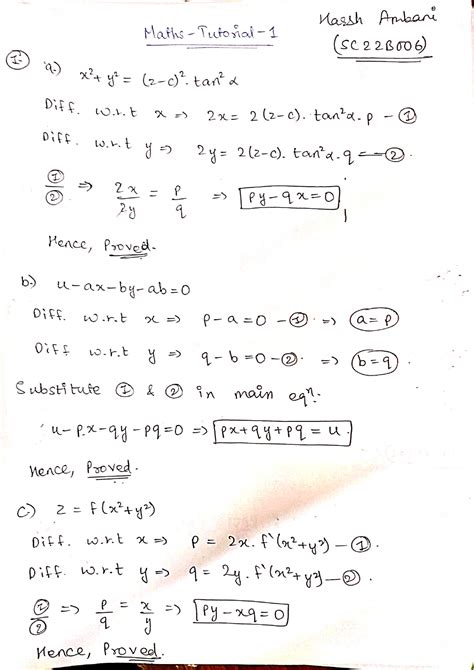 Maths-Tutorial-1
Harsh Ambani
(SC22B006)
1. a.) x²+y² = (z-c)². tan²α
Diff. w.r.t x => 2x = 2(z-c). tan²α. p - ①
Diff. w.r.t y => 2y = 2(z-c). tan²α. q - ②.
①/② => 2x/2y = p/q => py-qx=0
Hence, Proved.
b.) u-ax-by-ab=0
Diff. w.r.t x => p-a=0 - ①. => a=p
Diff w.r.t y => q-b=0 - ②. => b=q
Substitute ① & ② in main eqⁿ.
u-px-qy-pq=0 => px+qy+pq=u.
Hence, Proved.
c) z = f(x²+y²)
Diff. w.r.t x => p = 2x. f'(x²+y²) - ①.
Diff. w.r.t y => q = 2y. f'(x²+y²) - ②.
①/② => p/q = x/y => py-xq=0
Hence, Proved.